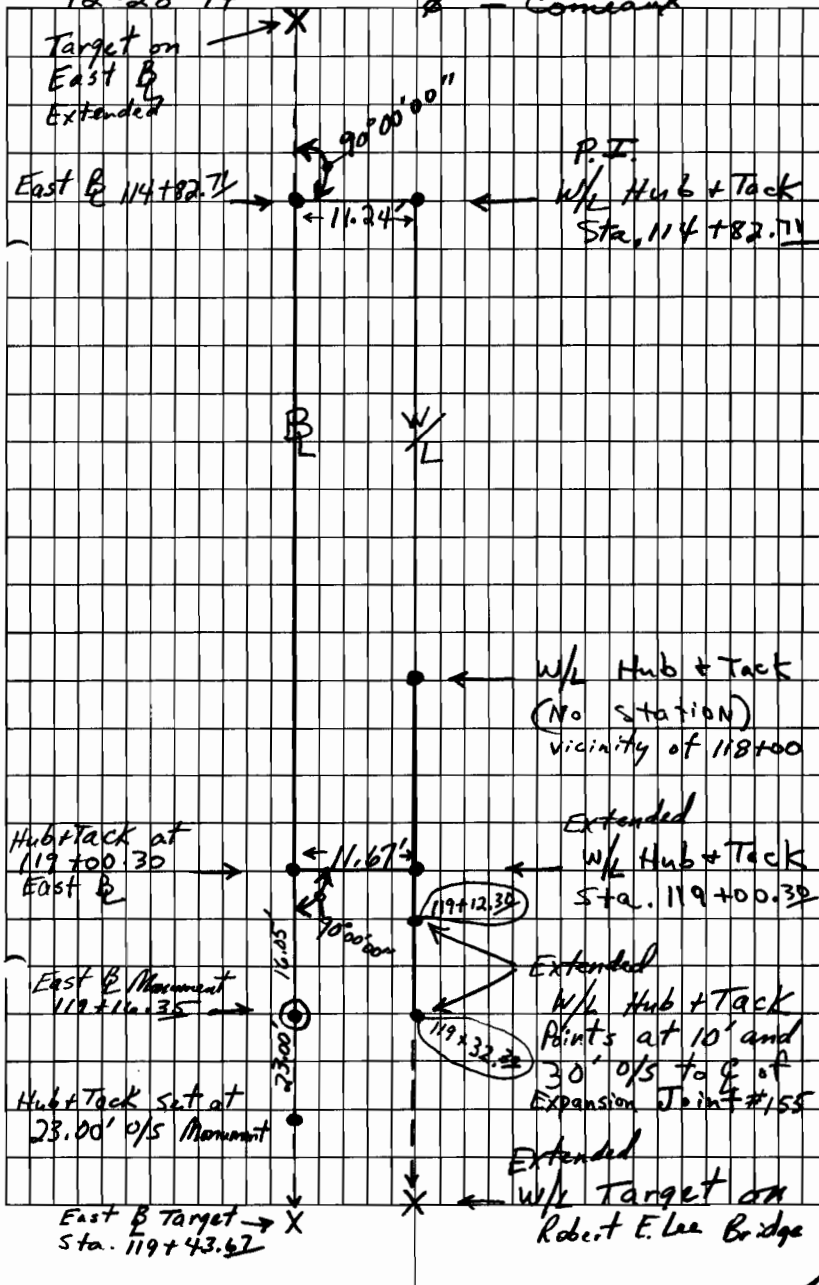 Comeaux
Target on
East B/L
Extended
90°00'00"
P.I.
East B/L 114+82.71
11.24'
W/L Hub + Tack
Sta. 114+82.71
B/L
W/L
W/L Hub + Tack
(No station)
vicinity of 118+00
Hub+Tack at
119+00.30
East B/L
11.67'
Extended
W/L Hub + Tack
Sta. 119+00.30
90°00'00"
16.05'
119+12.30
East B/L Monument
119+16.35
Extended
W/L Hub + Tack
Points at 10' and
30' o/s to C/L of
Expansion Joint #155
119+32.30
23.00'
Hub+Tack set at
23.00' o/s Monument
Extended
W/L Target on
Robert E. Lee Bridge
East B/L Target
Sta. 119+43.67